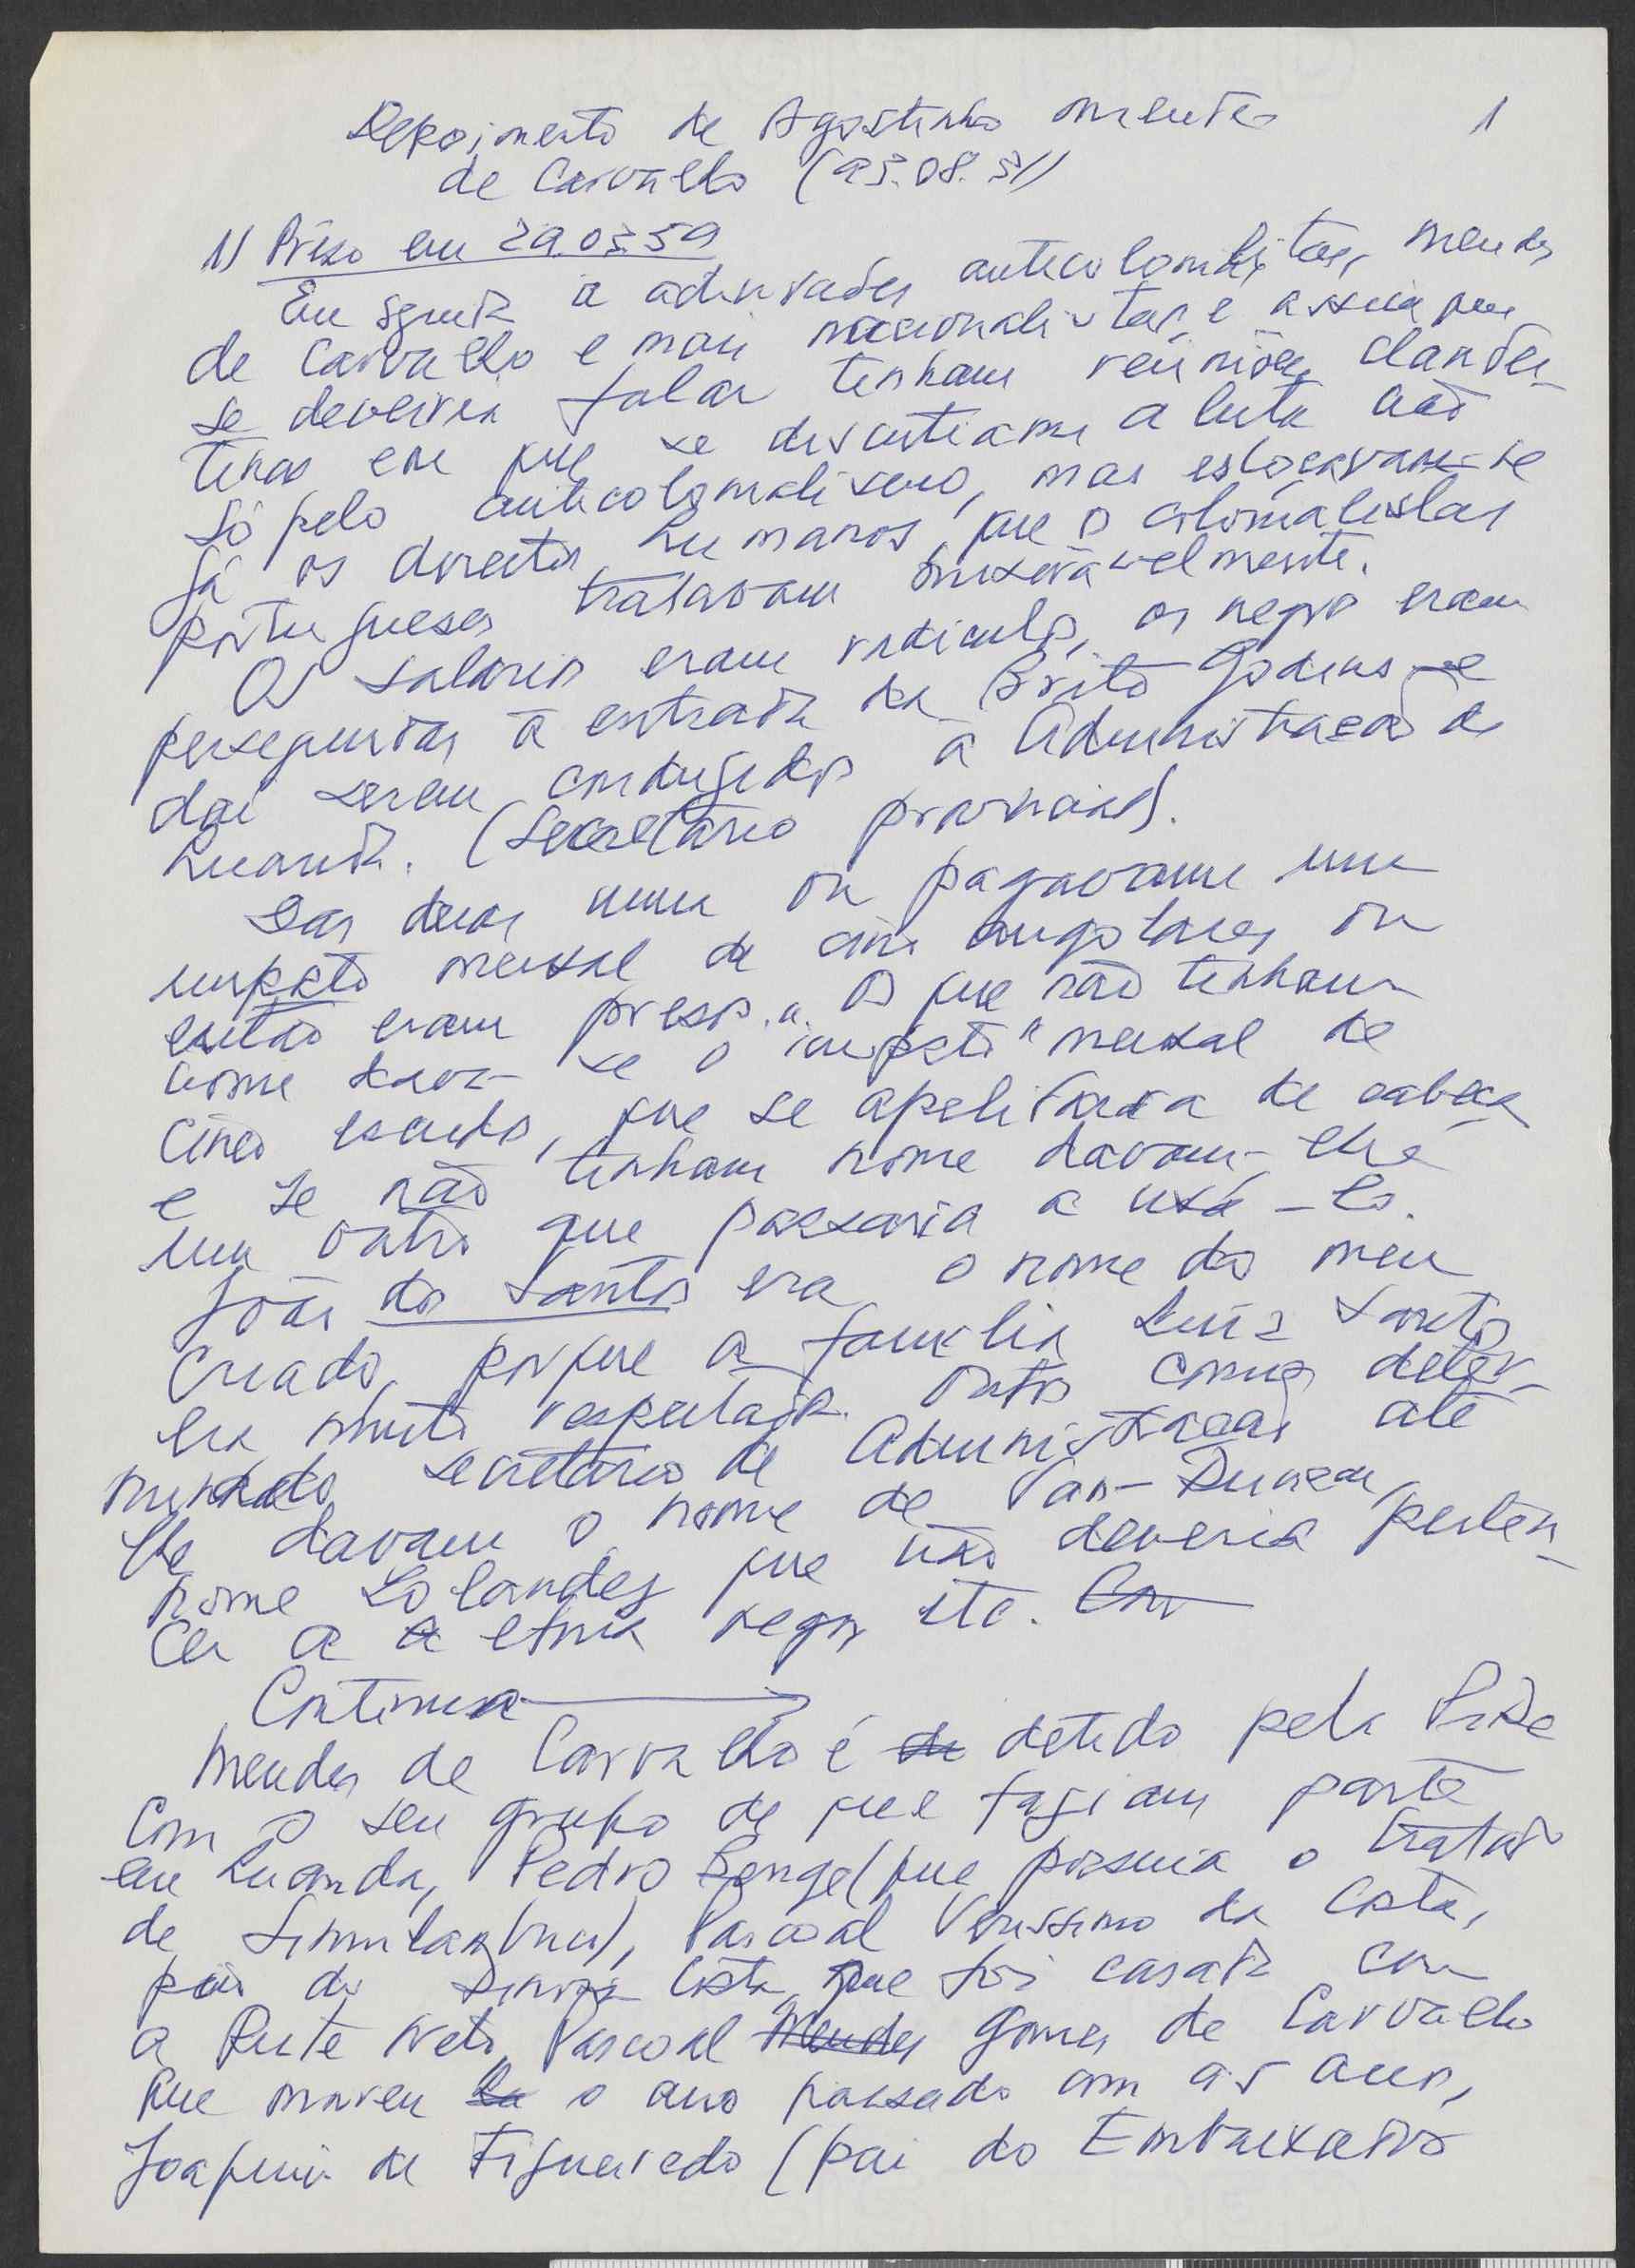 Depoimento de Agostinho Mendes 1
de Carvalho
1) Preso em 29.03.59
Em seguida a actividades anticolonialistas, Mendes
de Carvalho e mais nacionalistas e assim que
se deveria falar tinham reuniões clandes-
tinas em que se discutiam a luta não
só pelo anticolonialismo, mas
já os direitos humanos, que os colonialistas
portugueses tratavam miseravelmente.
Os salarios eram ridiculos, os negros eram
perseguidos à entrada da Brito Godins e
dai serem conduzidos a Administração de
Luanda. (Secretário provincial).
Das duas uma ou pagavam um
imposto mensal de cem angolares ou
então eram presos. Os que não tinham
nome dava-se o "imposto" mensal de
cinco escudos, que se apelidava de cabeça
e se não tinham nome davam-lhe
um outro que passaria a usá-lo.
João dos Santos era o nome do meu
criado, porque a familia Luiz Santos
era muito respeitada. Outros como deter-
minado secretário de Administração até
lhe davam o nome de Van-Dunem,
nome holandes que não deveria perten-
cer a a etnia negra etc. Con
Continua
Mendes de Carvalho é de detido pela Pide
com o seu grupo de que faziam parte
em Luanda, Pedro Benge (que possuia o tratado
de Simulambuco), Pascoal Verissimo da Costa,
pai do Costa que foi casada com
a Rute Neto, Pascoal Mendes Gomes de Carvalho
que morreu o ano passado com 95 anos,
Joaquim de Figueiredo (pai do Embaixador